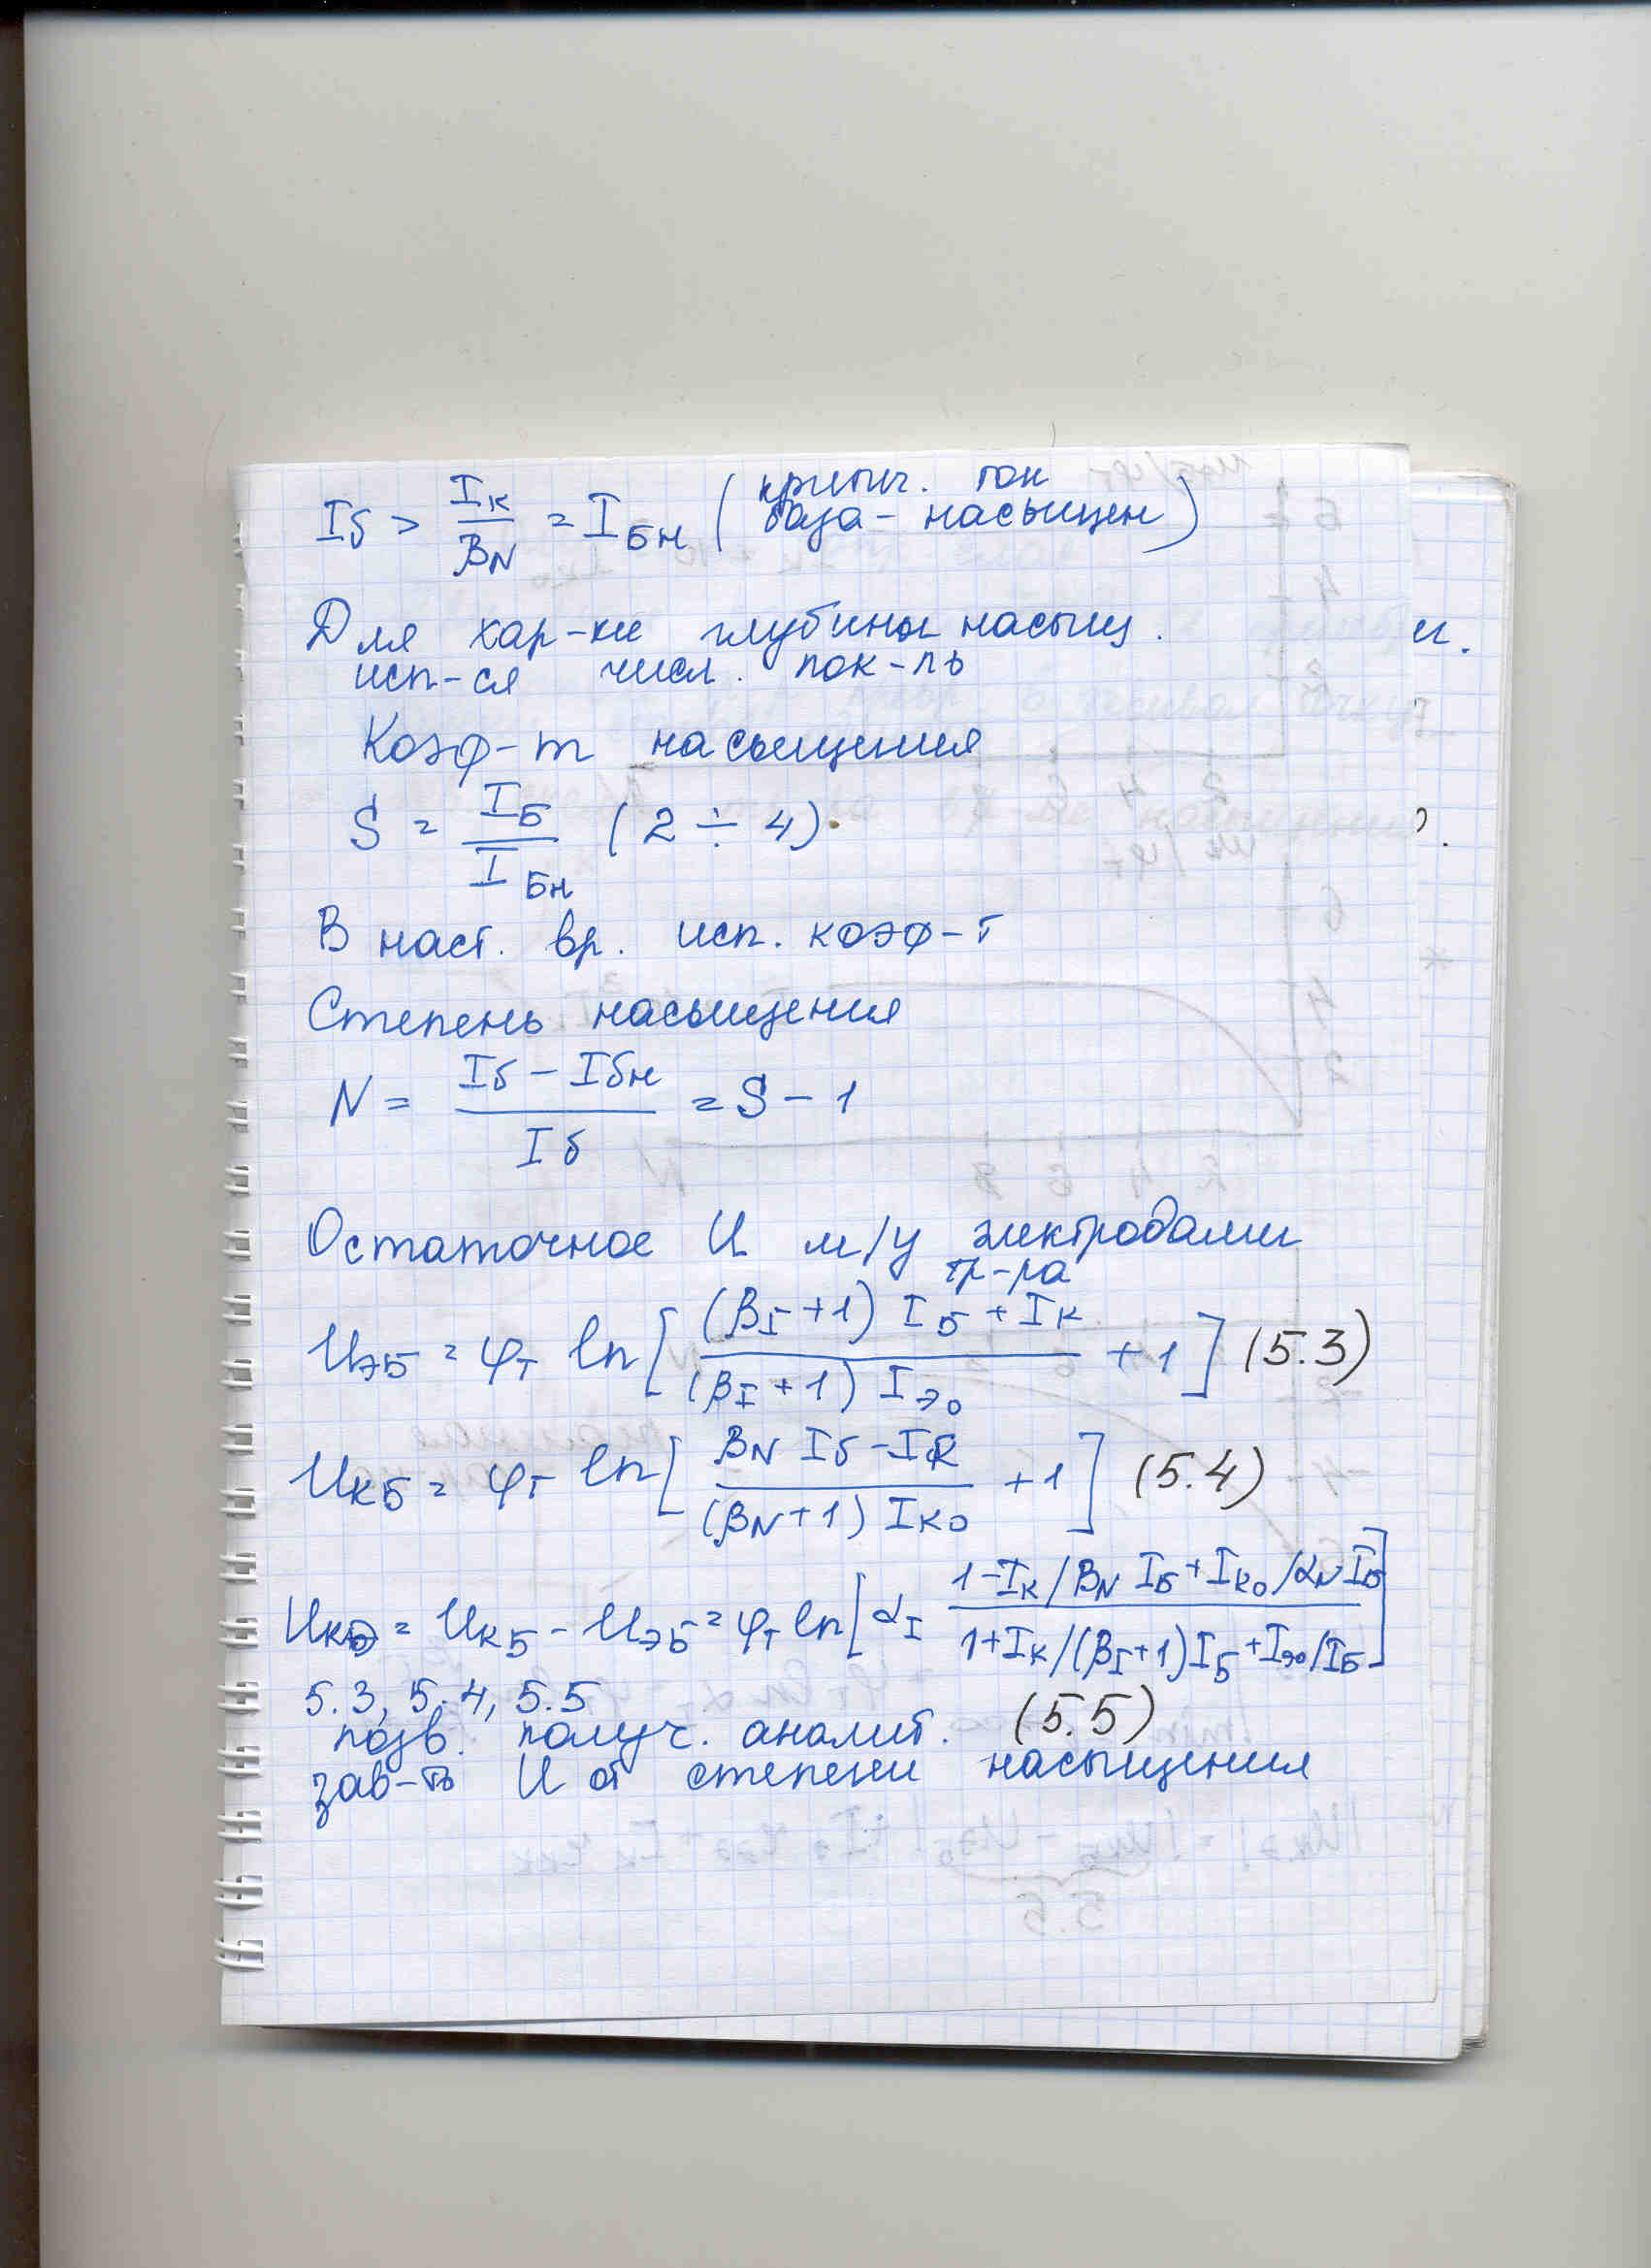 Iб > Iк/BN = IБн (критич. ток
база - насыщен)
Для хар-ки глубины насыщ.
исп-ся числ. пок-ль
Коэф-т насыщения
S = IБ/IБн (2 ÷ 4)
В наст. вр. исп. коэф-т
Степень насыщения
N = (Iб - Iбн)/Iб = S - 1
Остаточное U м/у электродами
тр-ра
UэБ = φT ln[((βI + 1) IБ + Iк)/((βI + 1) Iэ0) + 1] (5.3)
UкБ = φT ln[(BN Iб - Iк)/((βN + 1) Iк0) + 1] (5.4)
Uкэ = UкБ - UэБ = φT ln[αI (1 - Iк/BN IБ + Iк0/αN IБ)/(1 + Iк/(βI + 1) IБ + Iэ0/IБ)]
5.3, 5.4, 5.5 (5.5)
позв. получ. аналит.
зав-ть U от степени насыщения